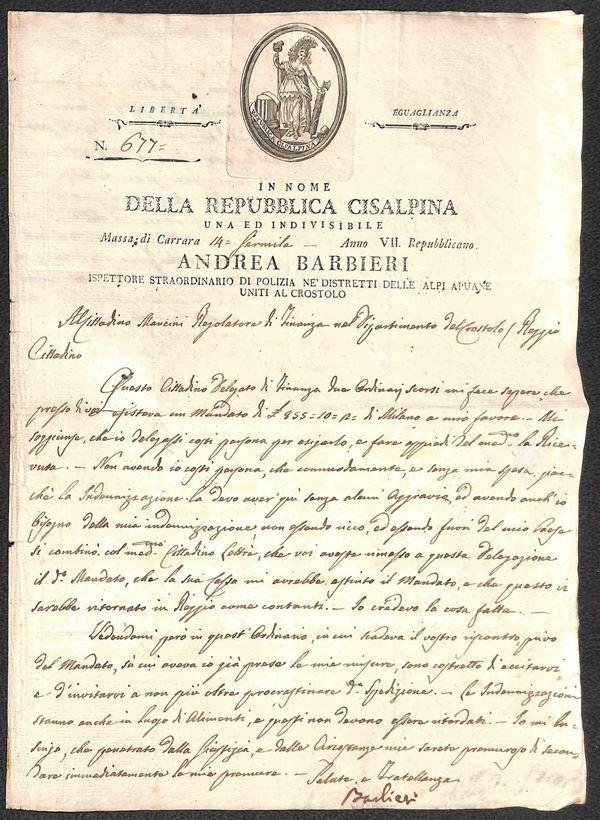 LIBERTA'
EGUAGLIANZA
REPUBBLICA CISALPINA
N. 677=
IN NOME
DELLA REPUBBLICA CISALPINA
UNA ED INDIVISIBILE
Massa di Carrara 14= Fermile — Anno VII. Repubblicano.
ANDREA BARBIERI
ISPETTORE STRAORDINARIO DI POLIZIA NE' DISTRETTI DELLE ALPI APUANE
UNITI AL CROSTOLO
Al Cittadino Mancini Regolatore di Finanza nel Dipartimento del Crostolo / Reggio
Cittadino
Questo Cittadino Delegato di Finanza due Ordinarj scorsi mi fece sapere, che
presso di voi esisteva un Mandato di £ 855=10= di Milano a mio favore. — Mi
soggiunse, che io delegassi costì persona per esigerlo, e fare appiedi del med.mo la Rice-
vuta. — Non avendo io costì persona, che commodamente, e senza mia spesa, per-
chè la Indennizzazione la devo aver quì senza alcun Aggravio, ed avendo anch'io
bisogno della mia indennizzazione, non essendo ricco, ed essendo fuori del mio Paese
si combinò col med.mo Cittadino, che voi aveste rimesso a questa Delegazione
il d.o Mandato, che la sua Cassa mi avrebbe estinto il Mandato, e che questo vi
sarebbe ritornato in Reggio come contanti. — Io credevo la cosa fatta. —
Vedendomi però in quest'Ordinario, in cui scadeva il vostro riscontro, privo
del Mandato, su cui aveva io già prese le mie misure, sono costretto di eccitarvi,
e d'invitarvi a non più oltre procrastinare d.a Spedizione. — Le Indennizzazioni
stanno anche in luogo di Alimenti, e questi non devono essere ritardati. — Io mi lu-
singo, che penetrato dalla Giustizia, e dalle Circostanze mie sarete premuroso di secon-
dare immediatamente le mie premure. — Salute, e Fratellanza
Barbieri